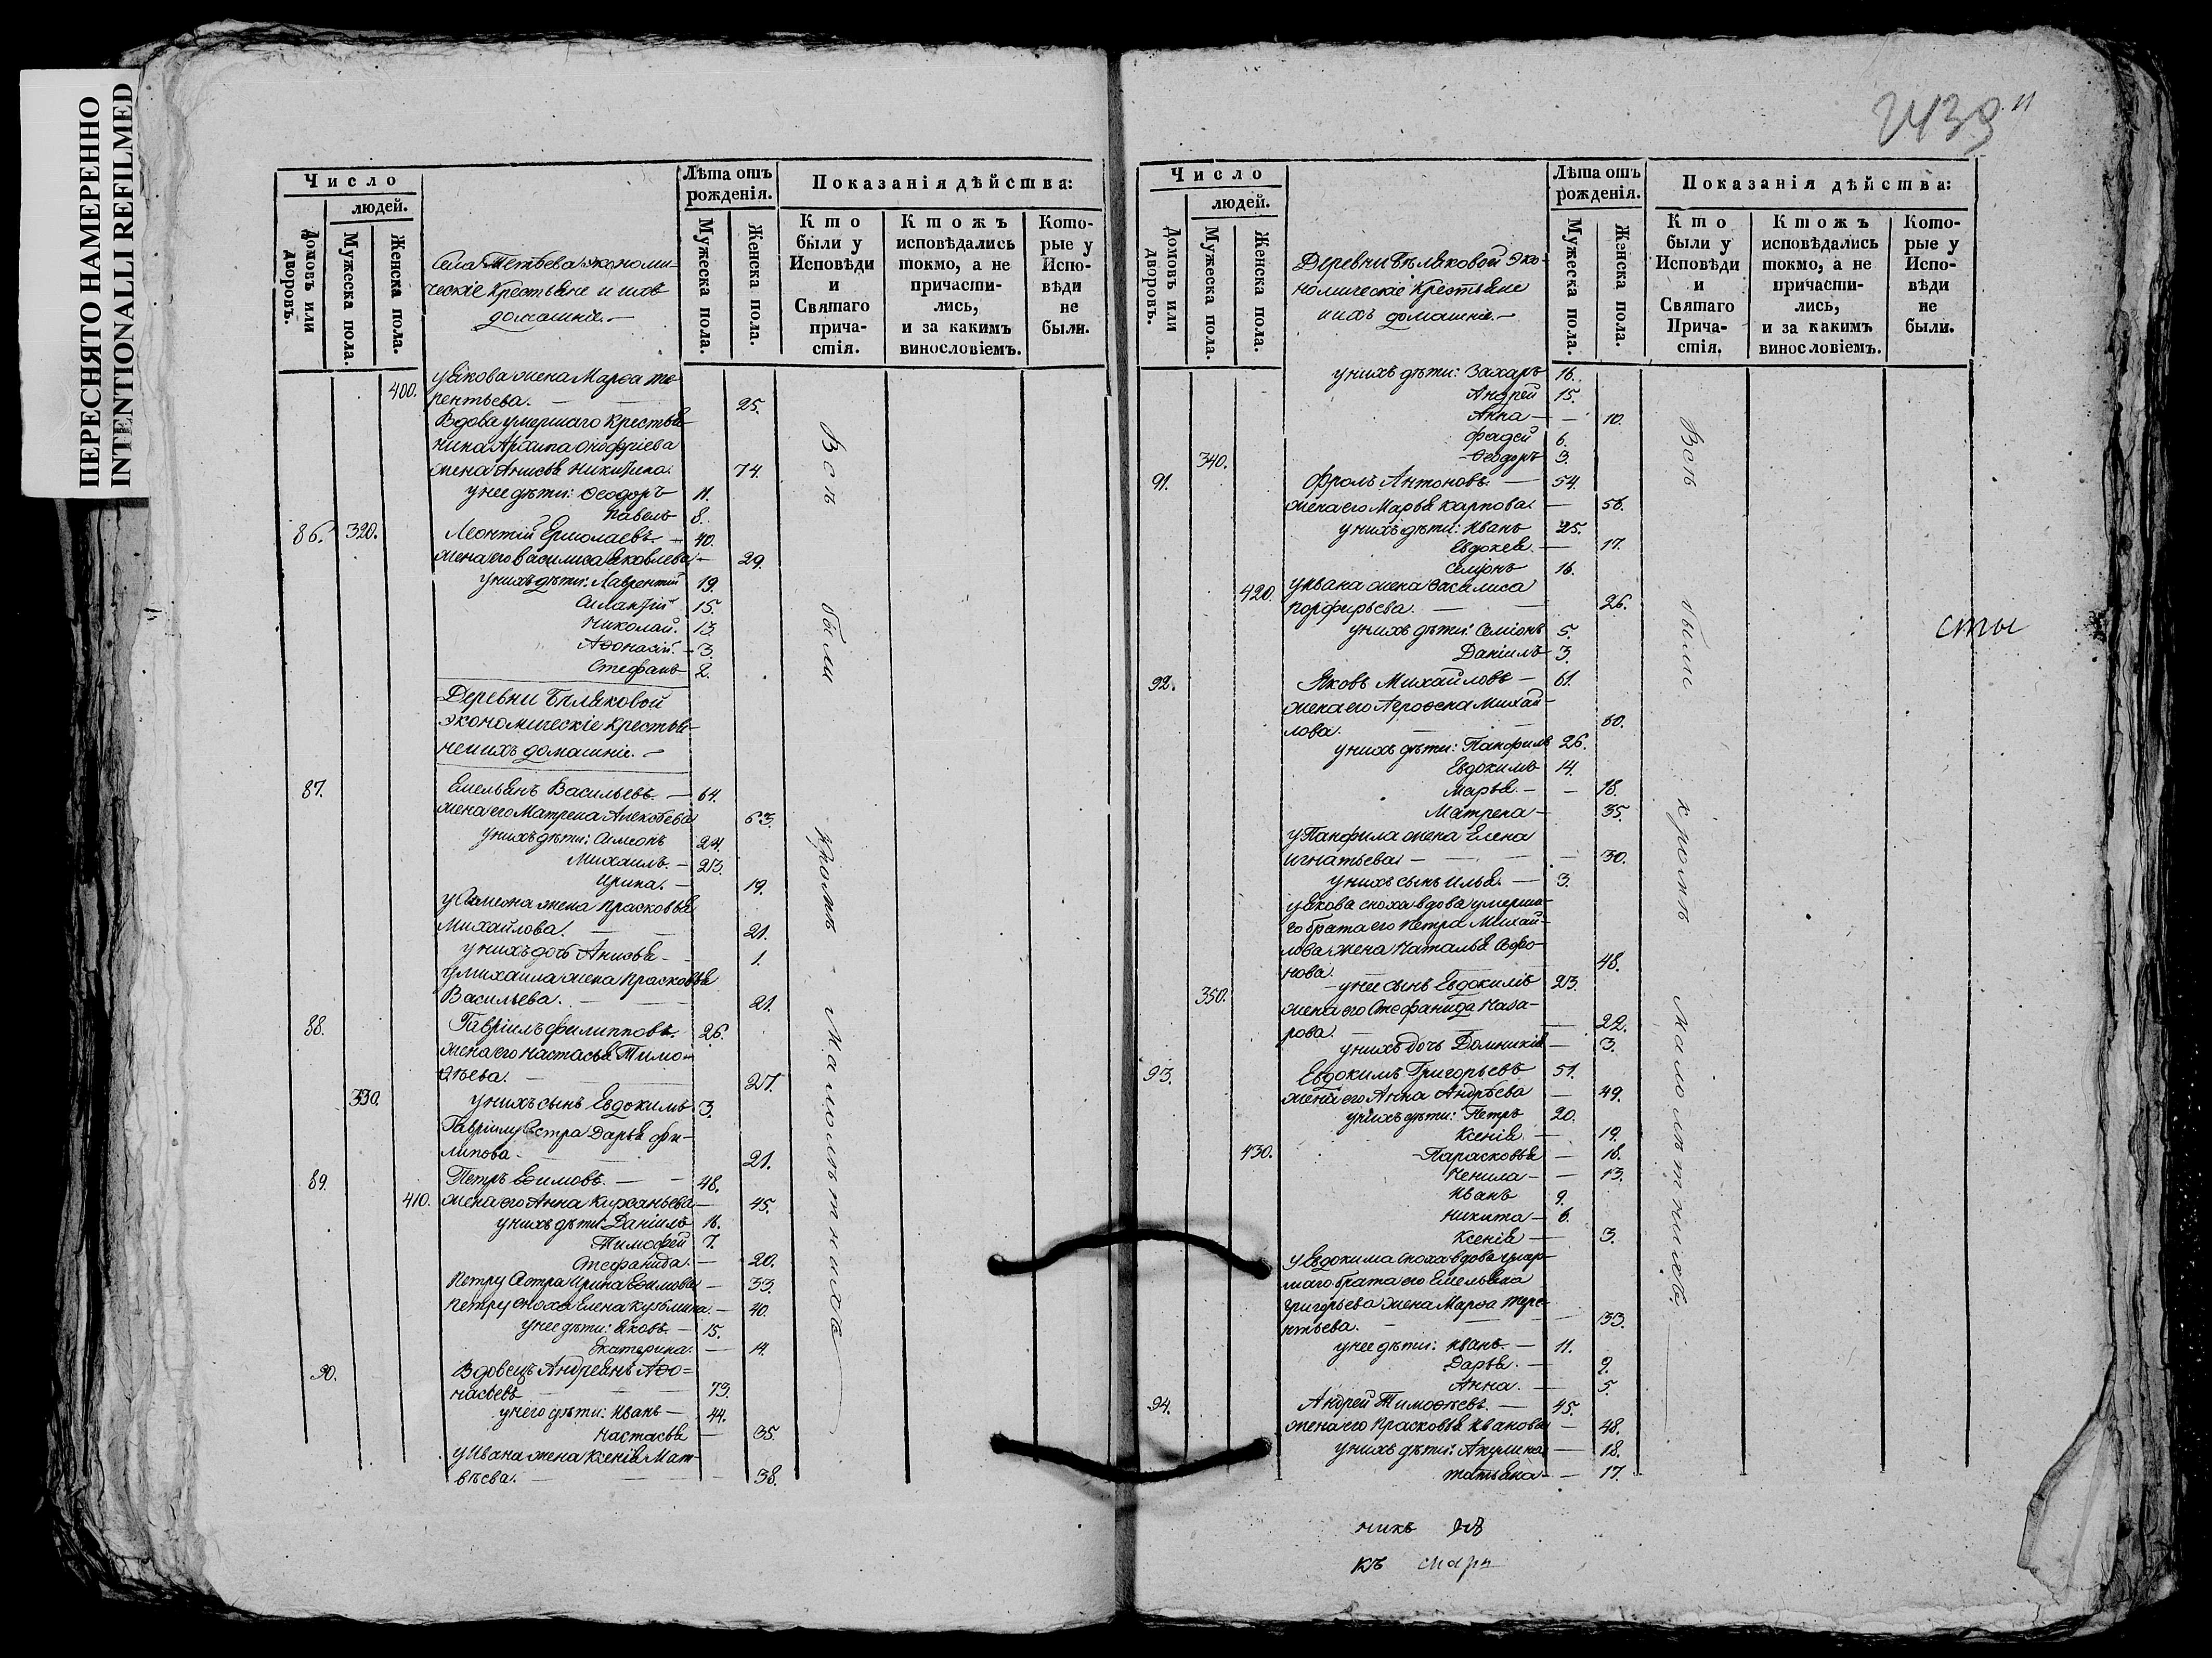 ПЕРЕСНЯТО НАМЕРЕННО
INTENTIONALLI REFILMED
Число
людей.
Домовъ или дворовъ.
Мужеска пола.
Женска пола.
Села Тетьева экономи-
ческіе Крестьяне и ихъ
домашніе.
Лѣта отъ рожденія.
Мужеска пола.
Женска пола.
Показанія дѣйства:
Кто были у Исповѣди и Святаго причастія.
Ктожъ исповѣдались токмо, а не причастились, и за какимъ винословіемъ.
Которые у Исповѣди не были.
400. у Якова жена Марѳа Те-
рентьева. 25.
Вдова умершаго Крестья-
нина Архипа Онофріева
жена Анисья Никитина. 74.
у нее дѣти: Ѳеодоръ 11.
Павелъ 8.
86. 320. Леонтій Ермолаевъ. 40.
жена его Василиса Яковлева 29.
у нихъ дѣти: Лаврентій 19.
Силантій 15.
Николай. 13.
Аѳонасій. 3.
Стефанъ 2.
Деревни Бѣляковой
экономическіе крестья-
не и ихъ домашніе.
87. Емельянъ Васильевъ. 64.
жена его Матрена Алексѣева 63.
у нихъ дѣти: Симеонъ 24.
Михаилъ. 23.
Ирина. 19.
у Симеона жена Прасковья
Михайлова. 21.
у нихъ дочь Анисья 1.
у Михаила жена Прасковья
Васильева. 21.
88. Гавріилъ Филипповъ. 26.
жена его Настасья Тимо-
ѳѣева. 27.
330. у нихъ сынъ Евдокимъ 3.
Гавріилу Сестра Дарья Фи-
липова 21.
89. Петръ Ефимовъ. 48.
410. жена его Анна Кирсаньева 45.
у нихъ дѣти: Даніилъ 16.
Тимофей 7.
Стефанида. 20.
Петру Сестра Ирина Ефимова 33.
Петру сноха Елена Кузьмина. 40.
у нее дѣти: Яковъ 15.
Екатерина. 14.
90. Вдовецъ Андреянъ Аѳо-
насьевъ 73.
у него дѣти: Иванъ 44.
Настасья 35.
у Ивана жена Ксенія Мат-
вѣева. 38.
Всѣ были кромѣ Малолѣтнихъ
2439
Число
людей.
Домовъ или дворовъ.
Мужеска пола.
Женска пола.
Деревни Бѣляковой Эко-
номическіе Крестьяне
и ихъ домашніе.
Лѣта отъ рожденія.
Мужеска пола.
Женска пола.
Показанія дѣйства:
Кто были у Исповѣди и Святаго Причастія.
Ктожъ исповѣдались токмо, а не причастились, и за какимъ винословіемъ.
Которые у Исповѣди не были.
у нихъ дѣти: Захаръ 16.
Андрей 15.
Анна 10.
Фадей 6.
340. Ѳеодоръ 3.
91. Фролъ Антоновъ. 54.
жена его Марья Карпова. 56.
у нихъ дѣти: Иванъ 25.
Евдокея. 17.
Семіонъ 16.
420. у Ивана жена Василиса
Порфирьева. 26.
у нихъ дѣти: Семіонъ 5.
Даніилъ 3.
92. Яковъ Михайловъ 61.
жена его Аграфена Михай-
лова. 60.
у нихъ дѣти: Панфилъ 26.
Евдокимъ 14.
Марья. 18.
Матрена 35.
у Панфила жена Елена
Игнатьева. 30.
у нихъ сынъ Илья. 3.
у Якова сноха вдова умерша-
го брата его Петра Михай-
лова жена Наталья Софо-
нова. 48.
350. у нее сынъ Евдокимъ 23.
жена его Стефанида Наза-
рова. 22.
у нихъ дочь Домникія 3.
93. Евдокимъ Григорьевъ 51.
жена его Анна Андрѣева 49.
у нихъ дѣти: Петръ 20.
Ксенія. 19.
430. Парасковья 18.
Ненила 13.
Иванъ 9.
Никита 6.
Ксенія 3.
у Евдокима сноха вдова умер-
шаго брата его Емельяна
Григорьева жена Марѳа Тере-
нтьева. 33.
у нее дѣти: Иванъ. 11.
Дарья. 9.
Анна. 5.
94. Андрей Тимоѳеевъ. 45.
жена его Прасковья Иванова 48.
у нихъ дѣти: Акулина 18.
Татьяна 17.
Всѣ были кромѣ Малолѣтнихъ.
сты
никъ
къ